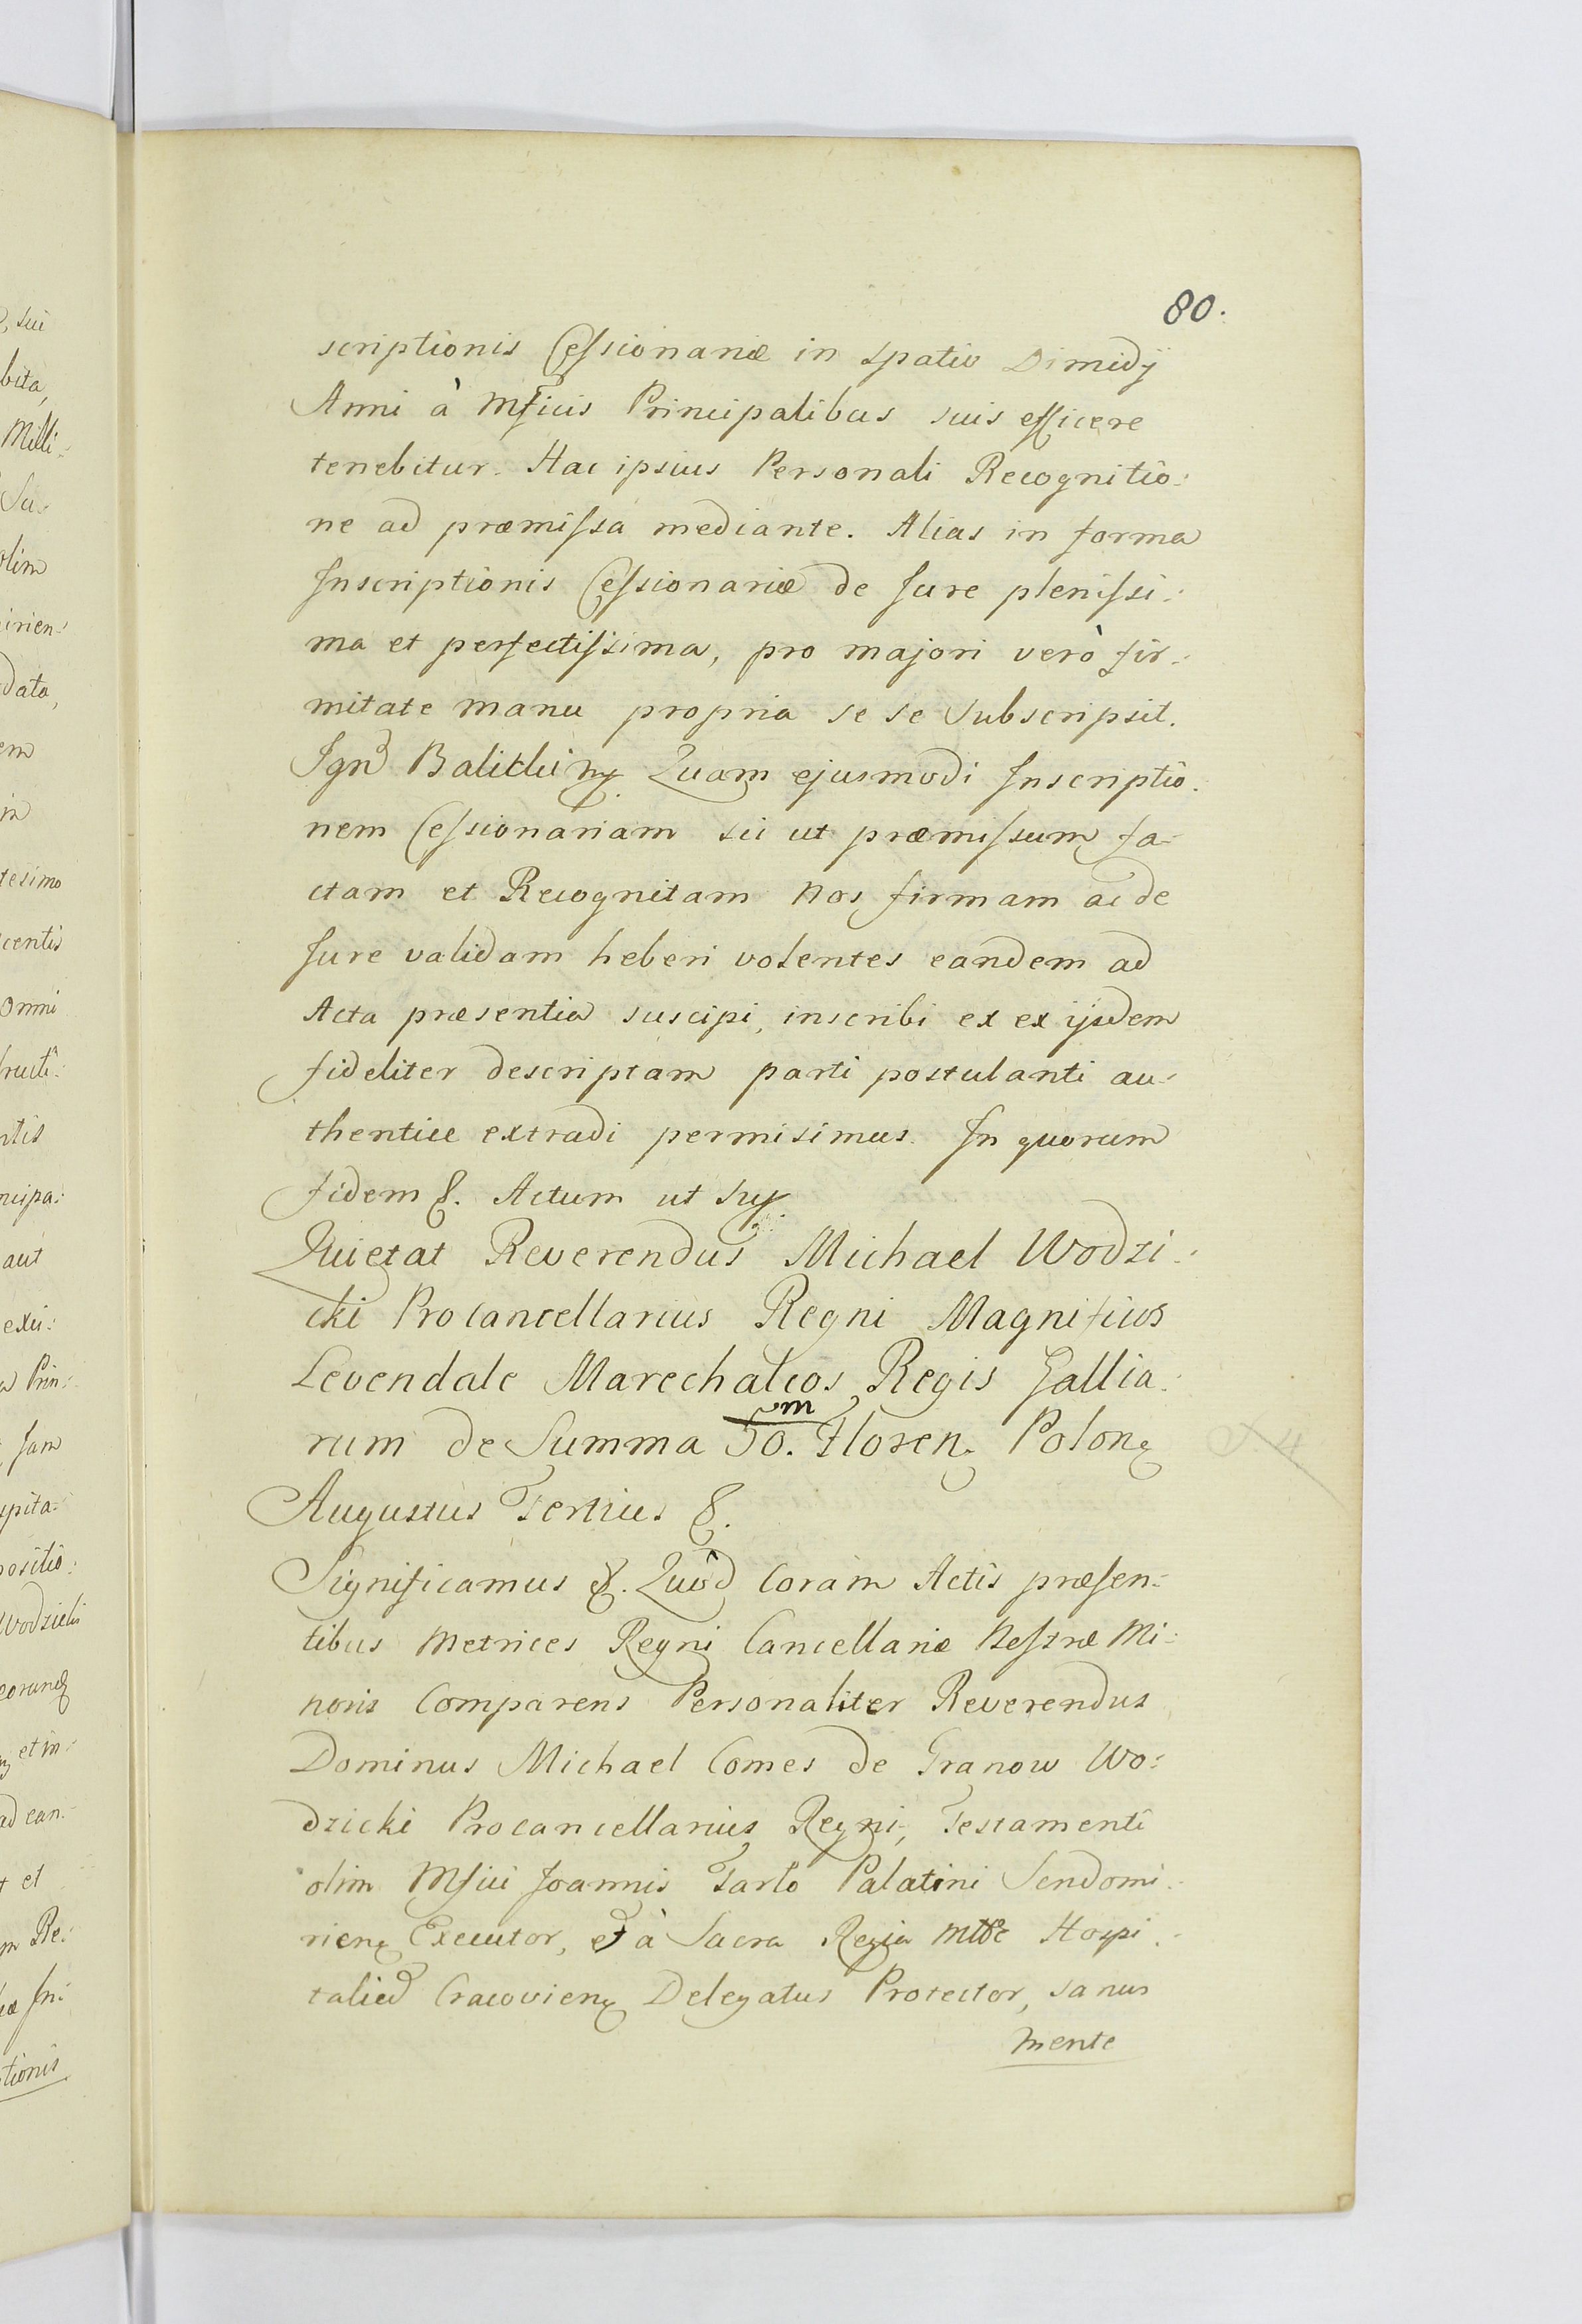 80.
scriptionis Cessionariæ in spatio Dimidij
Anni à Mficis Principalibus suis efficere
tenebitur. Hac ipsius Personali Recognitio:
ne ad præmissa mediante. Alias in forma
Inscriptionis Cessionariæ de Jure plenissi:
ma et perfectissima, pro majori verò fir:
mitate manu propria se se Subscripsit.
Quam ejusmodi Inscriptio:
nem Cessionariam sic ut præmissum fa:
ctam et Recognitam Nos firmam ac de
Jure validam heberi volentes eandem ad
Acta præsentia suscipi, inscribi ex ex ijsdem
fideliter descriptam parti postulanti au:
thentice extradi permisimus. In quorum
fidem &. Actum ut sup.
Quietat Reverendus Michael Wodzi:
cki Procancellarius Regni Magnificos
Levendale Marechalcos Regis Gallia:
rum de Summa 50. m Floren. Polon.
Augustus Tertius &.
Significamus &. Quòd Coram Actis præsen:
tibus Metrices Regni Cancellariæ Nestræ Mi:
noris Comparens Personaliter Reverendus
Dominus Michael Comes de Granow Wo:
dzicki Procancellarius Regni, Testamenti
olim Mfici Joannis Tarlo Palatini Sendomi:
rien. Executor, et à Sacra Regia Mtte Hospi:
talied Cracovien. Delegatus Protector, sanus
mente